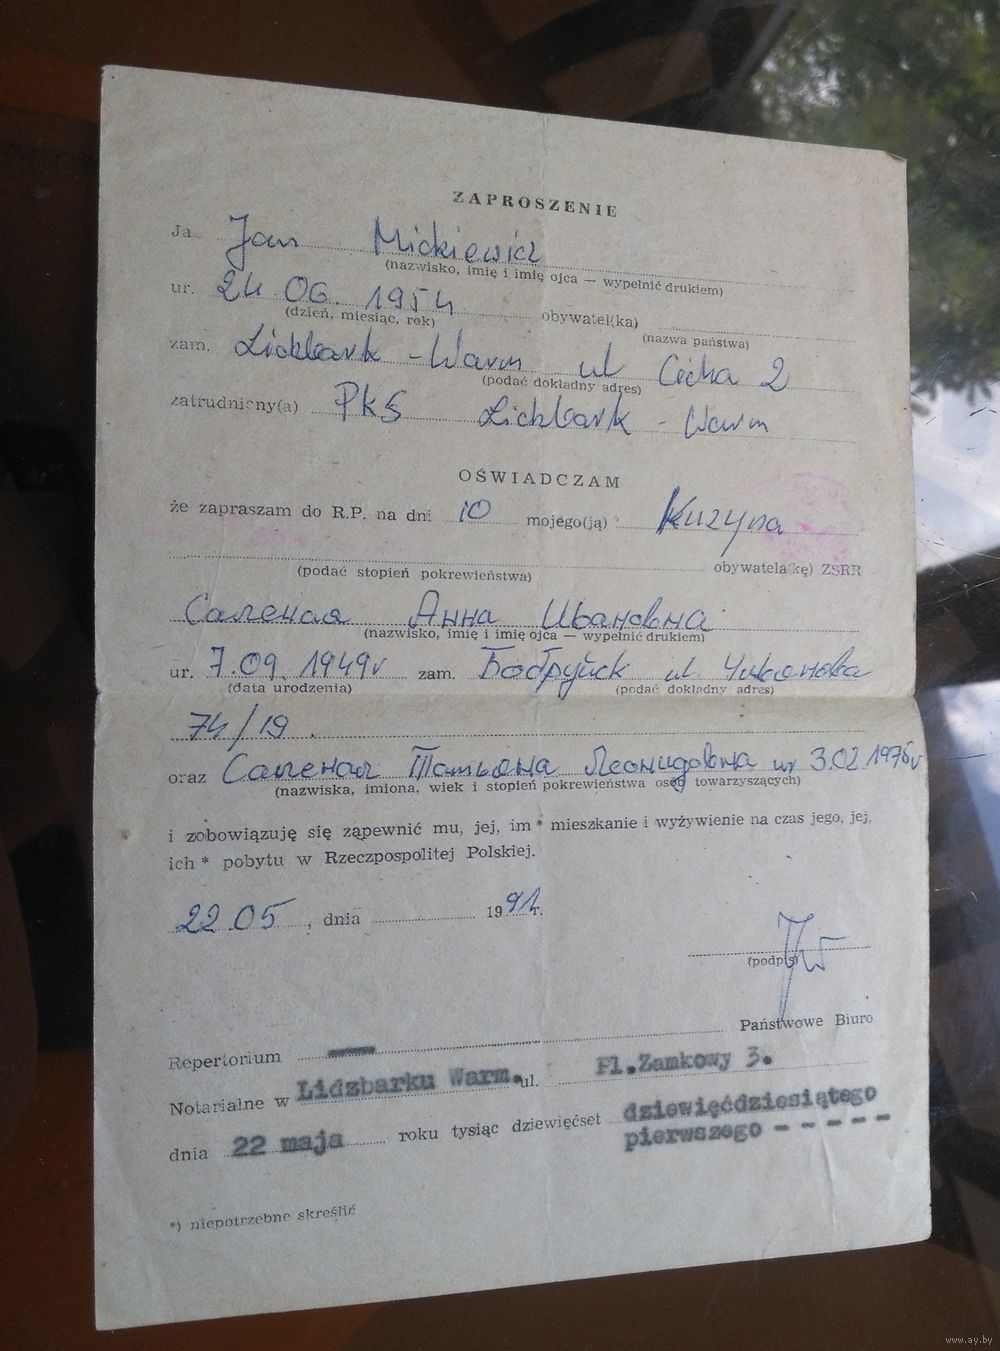 ZAPROSZENIE
Ja Jan Mickiewicz
(nazwisko, imię i imię ojca — wypełnić drukiem)
ur. 24 06. 1954 obywatel(ka)
(dzień, miesiąc, rok) (nazwa państwa)
zam. Lidzbark - Warm ul Cicha 2
(podać dokładny adres)
zatrudniony(a) PKS Lidzbark - Warm
OŚWIADCZAM
że zapraszam do R.P. na dni 10 mojego(ją) Kuzyna
(podać stopień pokrewieństwa) obywatela(kę) ZSRR
Саленая Анна Ивановна
(nazwisko, imię i imię ojca — wypełnić drukiem)
ur. 7.09. 1949r zam. Бобруйск ul
(data urodzenia) (podać dokładny adres)
74/19.
oraz Саленая Татьяна Леонидовна ur 3.02 1976r
(nazwiska, imiona, wiek i stopień pokrewieństwa osób towarzyszących)
i zobowiązuję się zapewnić mu, jej, im * mieszkanie i wyżywienie na czas jego, jej,
ich * pobytu w Rzeczpospolitej Polskiej.
22 05, dnia 1991r.
(podpis)
Repertorium Państwowe Biuro
Notarialne w Lidzbarku Warm. ul. Pl.Zamkowy 3.
dnia 22 maja roku tysiąc dziewięćset dziewięćdziesiątego
pierwszego - - - - -
*) niepotrzebne skreślić
www.ay.by